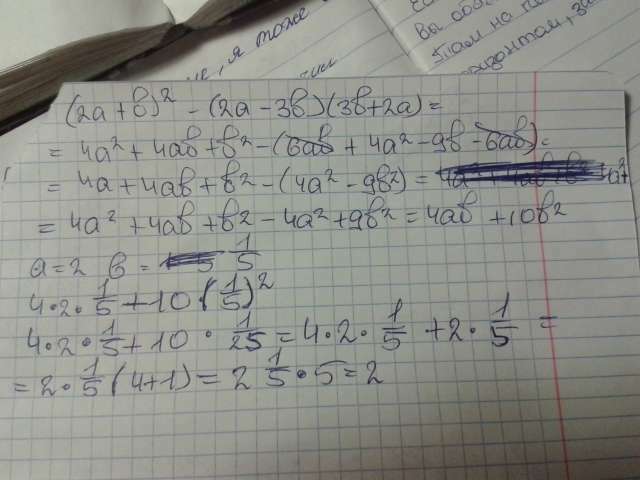 (2a+b)² - (2a-3b)(3b+2a)=
= 4a²+4ab+b²-(6ab+4a²-9b-6ab)=
= 4a+4ab+b²-(4a²-9b²)=
= 4a²+4ab+b²-4a²+9b²=4ab+10b²
a=2 b=1/5
4·2·1/5+10(1/5)²
4·2·1/5+10·1/25=4·2·1/5+2·1/5=
=2·1/5(4+1)=2 1/5·5=2
я тоже
вы соби